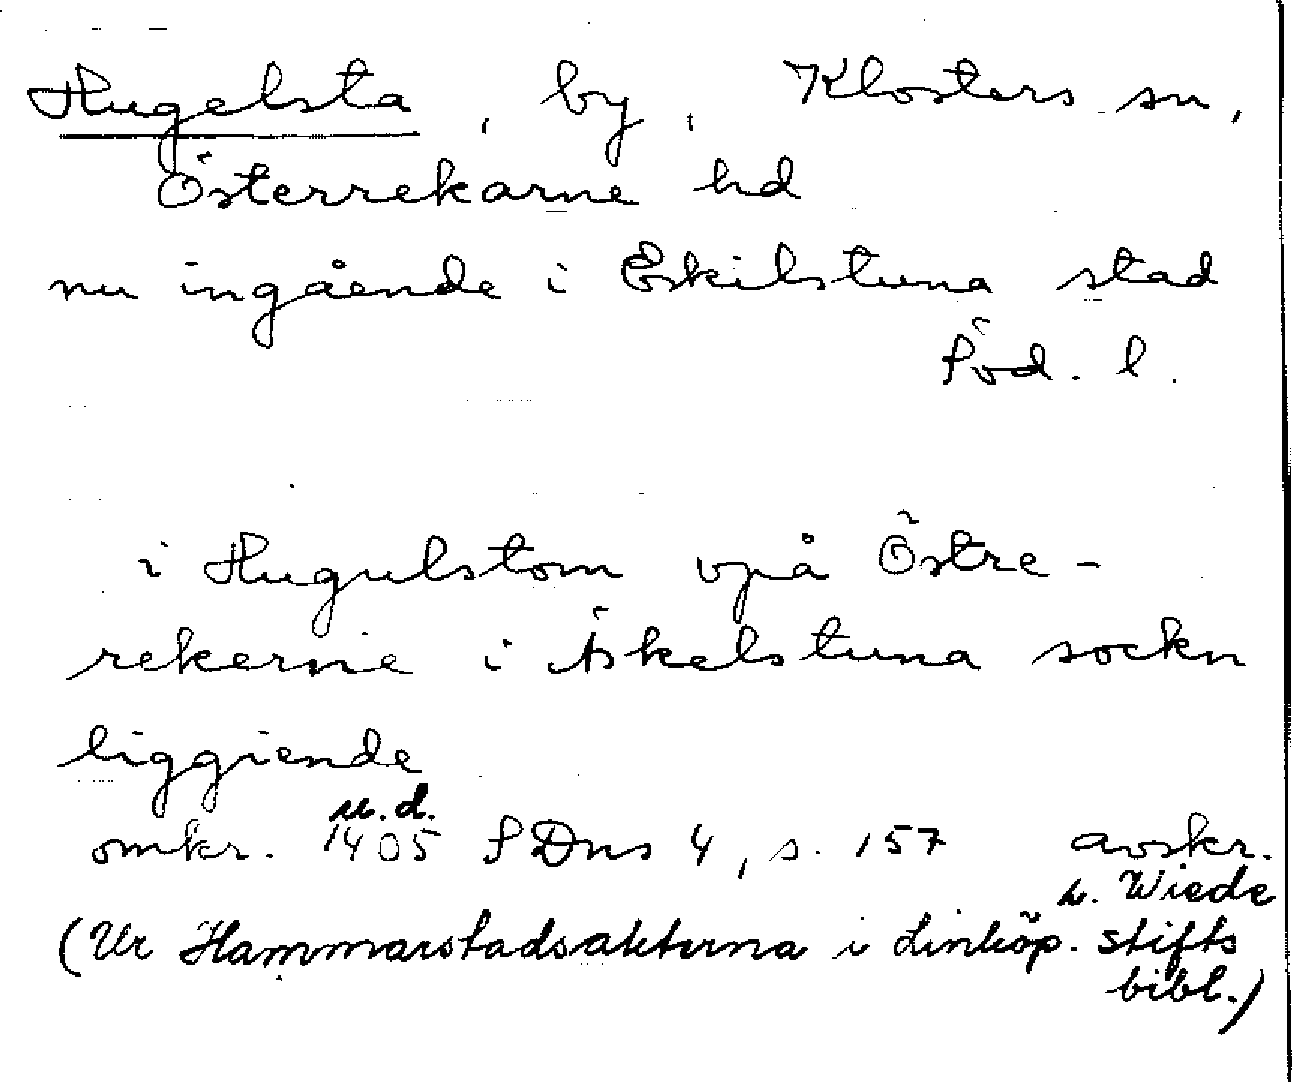 Hugelsta, by, Klosters sn,
Österrekarne hd
nu ingående i Eskilstuna stad
Söd. l.
i Hugulstom vpå Östre-
rekerne i Äskelstuna sockn
liggiende
u.d.
omkr. 1405 SDns 4, s. 157 avskr.
h. Wiede
(Ur Hammarstadsakterna i Linköp. stifts
bibl.)